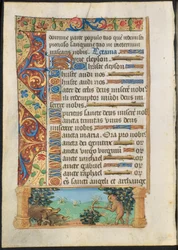 domine parce populo tuo quem redemisti
precioso sanguine tuo ne in eternum
irascaris nobis. Letania.
Kyrie eleyson.
Christe eleyson
Christe audi nos
Christe audi nos
Pater de celis deus miserere nobis
Fili redemptor mundi deus
miserere nobis
Spiritus sancte deus miserere nobis
Sancta trinitas unus deus
miserere nobis
Sancta maria Ora pro nobis
Sancta dei genitrix
Sancta virgo virginum
Sancte michael
Sancte gabriel
Sancte raphael
Omnes sancti angeli et archangeli